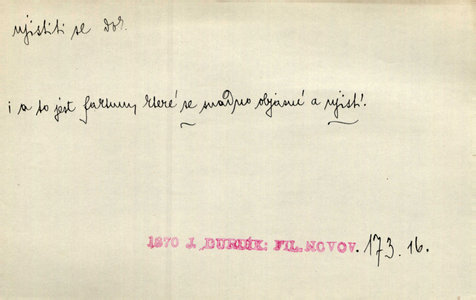 ujistiti se dok.
i a to jest faktum, které se snadno objasní a ujistí.
1870 J. DURDÍK: FIL. NOVOV. 173. 16.